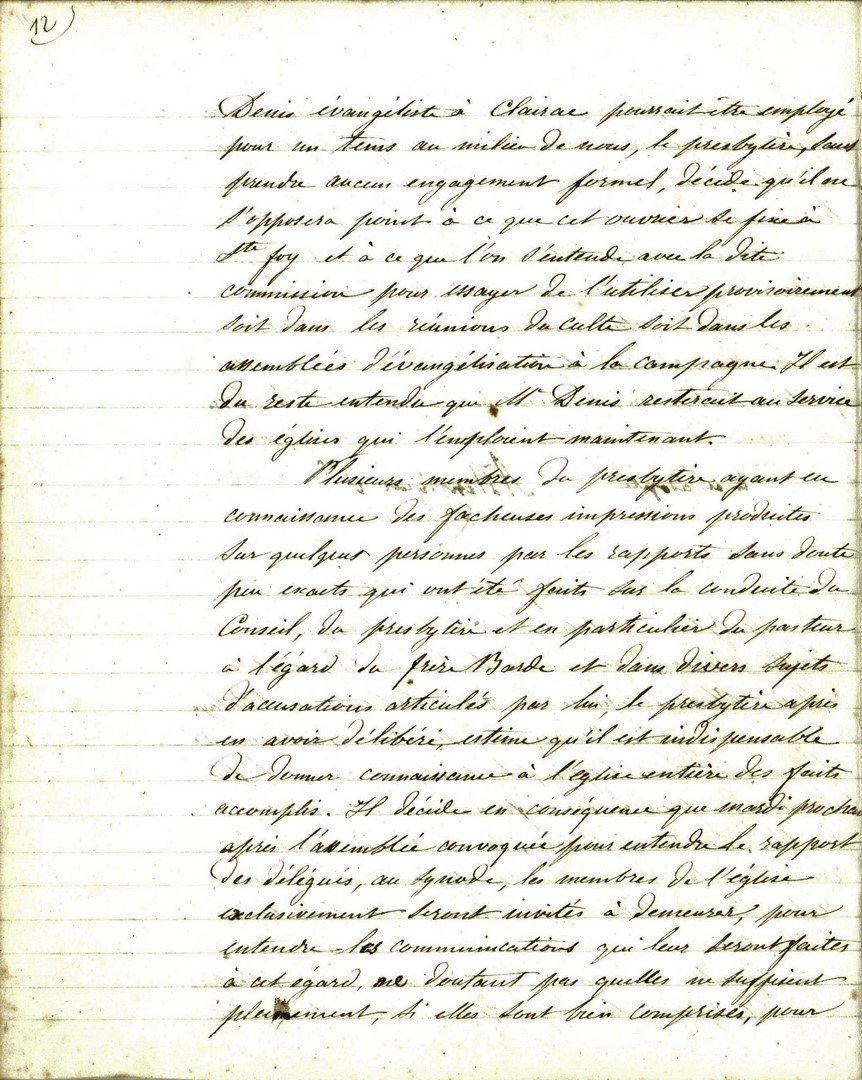 12)
Denis évangéliste à Clairac pourrait être employé
pour un tems au milieu de nous, le presbytère, sans
prendre aucun engagement formel, décide qu'il ne
s'opposera point à ce que cet ouvrier se fixe à
Ste foy et à ce que l'on s'entende avec la dite
commission pour essayer de l'utiliser provisoirement
soit dans les réunions du culte soit dans les
assemblées d'évangélisation à la campagne. Il est
du reste entendu que Mr Denis resterait au service
des églises qui l'emploient maintenant.
Plusieurs membres du presbytère ayant eu
connaissance des facheuses impressions produites
sur quelques personnes par les rapports sans doute
peu exacts qui ont été faits sur la conduite du
Conseil, du presbytère et en particulier du pasteur
à l'égard du frère Barde et dans divers sujets
d'accusations articulés par lui, le presbytère après
en avoir délibéré, estime qu'il est indispensable
de donner connaissance à l'église entière des faits
accomplis. Il décide en conséquence que mardi prochain
après l'assemblée convoquée pour entendre le rapport
des délégués, au synode, les membres de l'église
exclusivement seront invités à demeurer, pour
entendre les communications qui leur seront faites
à cet égard, ne doutant pas quelles ne suffisent
pleinement, si elles sont bien comprises, pour